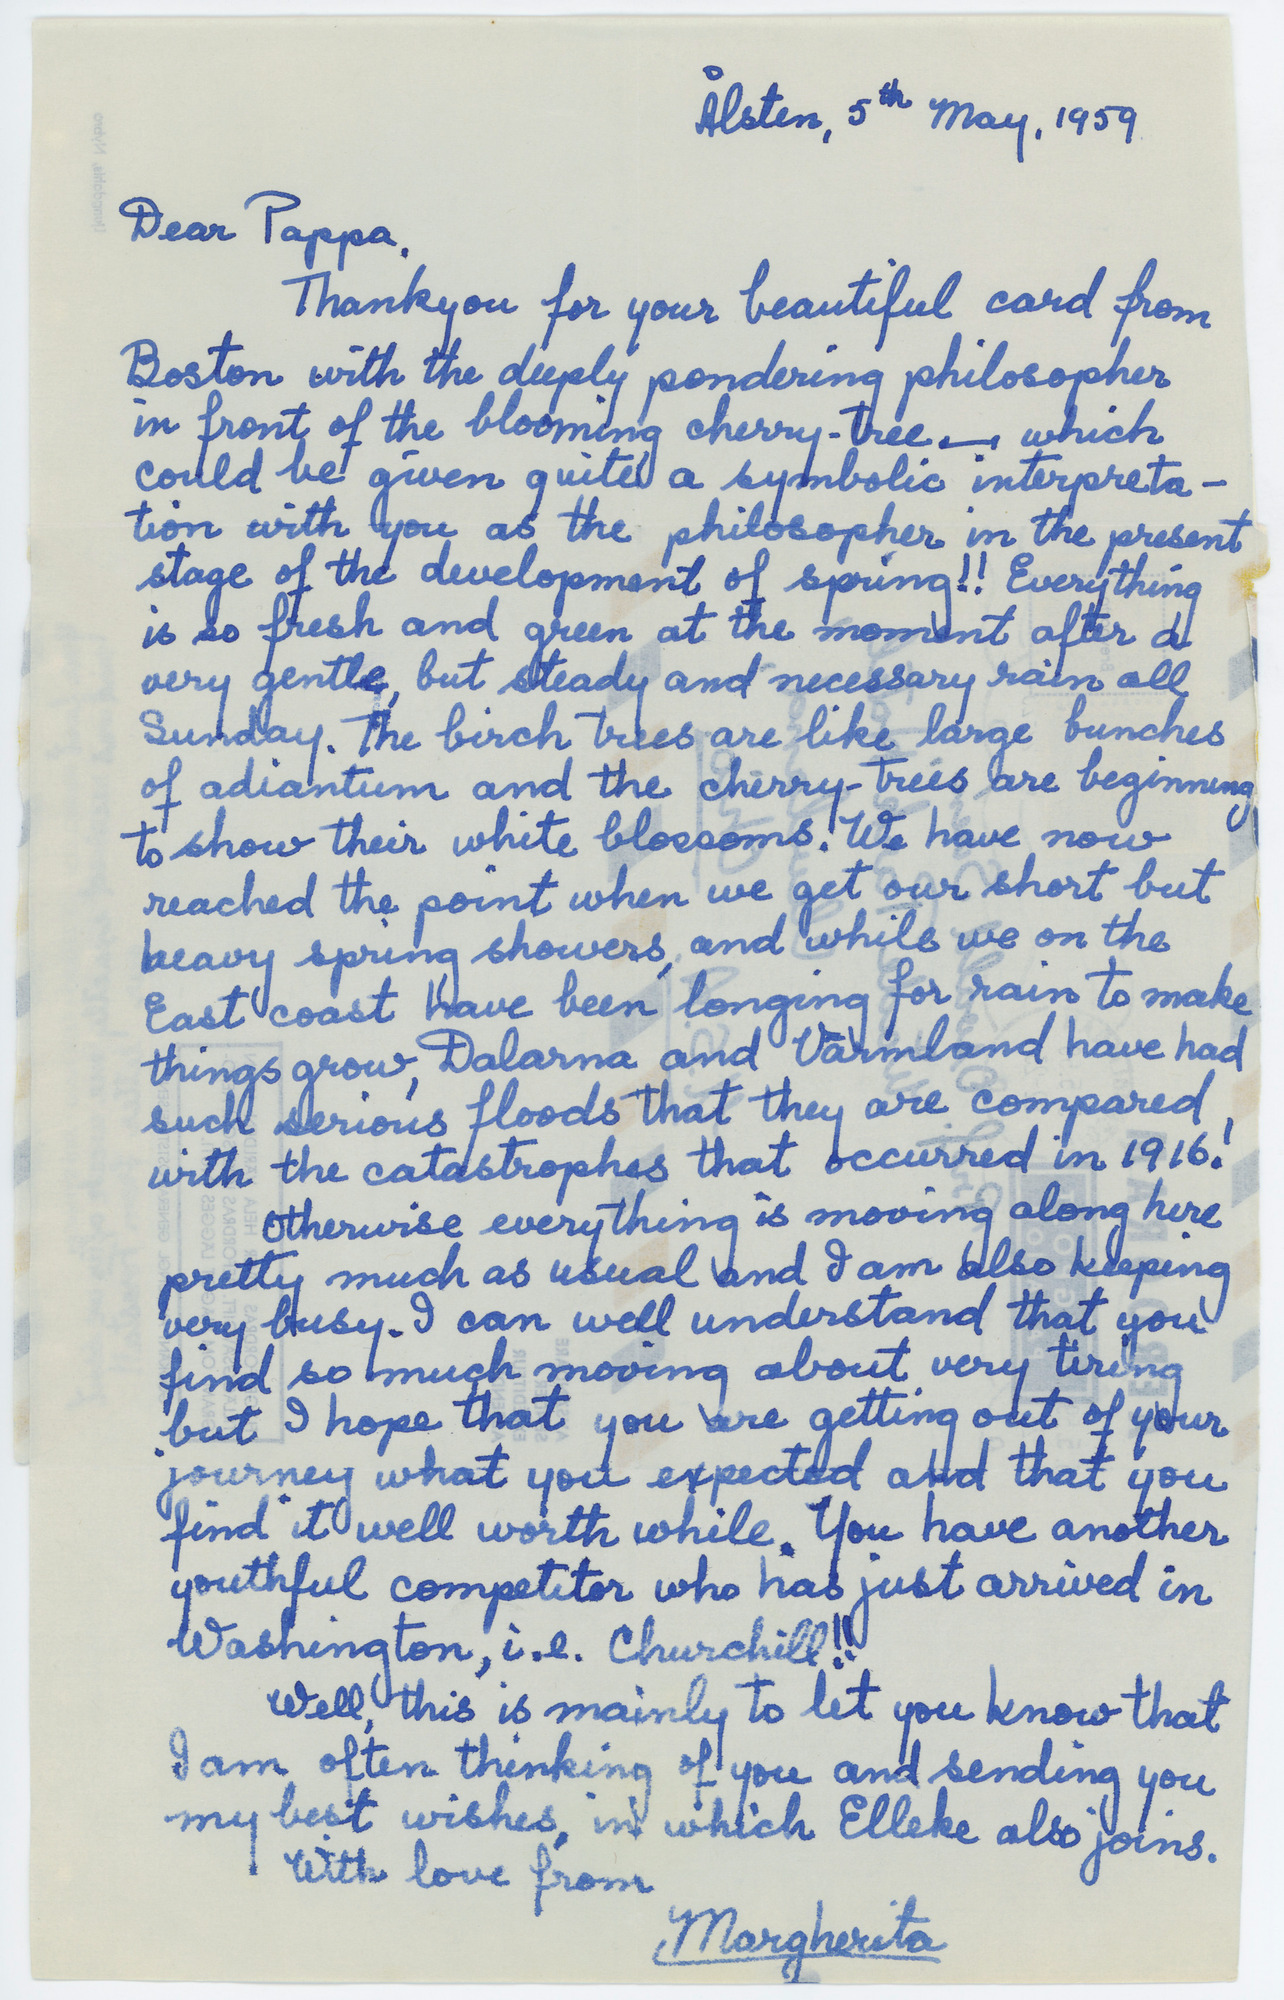 Ålsten, 5th May, 1959
Dear Pappa.
Thankyou for your beautiful card from
Boston with the deeply pondering philosopher
in front of the blooming cherry-tree — which
could be given quite a symbolic interpreta-
tion with you as the philosopher in the present
stage of the development of spring!! Everything
is so fresh and green at the moment after a
very gentle, but steady and necessary rain all
Sunday. The birch trees are like large bunches
of adiantum and the cherry-trees are beginning
to show their white blossoms. We have now
reached the point when we get our short but
heavy spring showers, and while we on the
East coast have been longing for rain to make
things grow, Dalarna and Värmland have had
such serious floods that they are compared
with the catastrophes that occurred in 1916!
Otherwise everything is moving along here
pretty much as usual and I am also keeping
very busy. I can well understand that you
find so much moving about very tiring
but I hope that you are getting out of your
journey what you expected and that you
find it well worth while. You have another
youthful competitor who has just arrived in
Washington, i.e. Churchill!!
Well, this is mainly to let you know that
I am often thinking of you and sending you
my best wishes, in which Elleke also joins.
With love from
Margherita